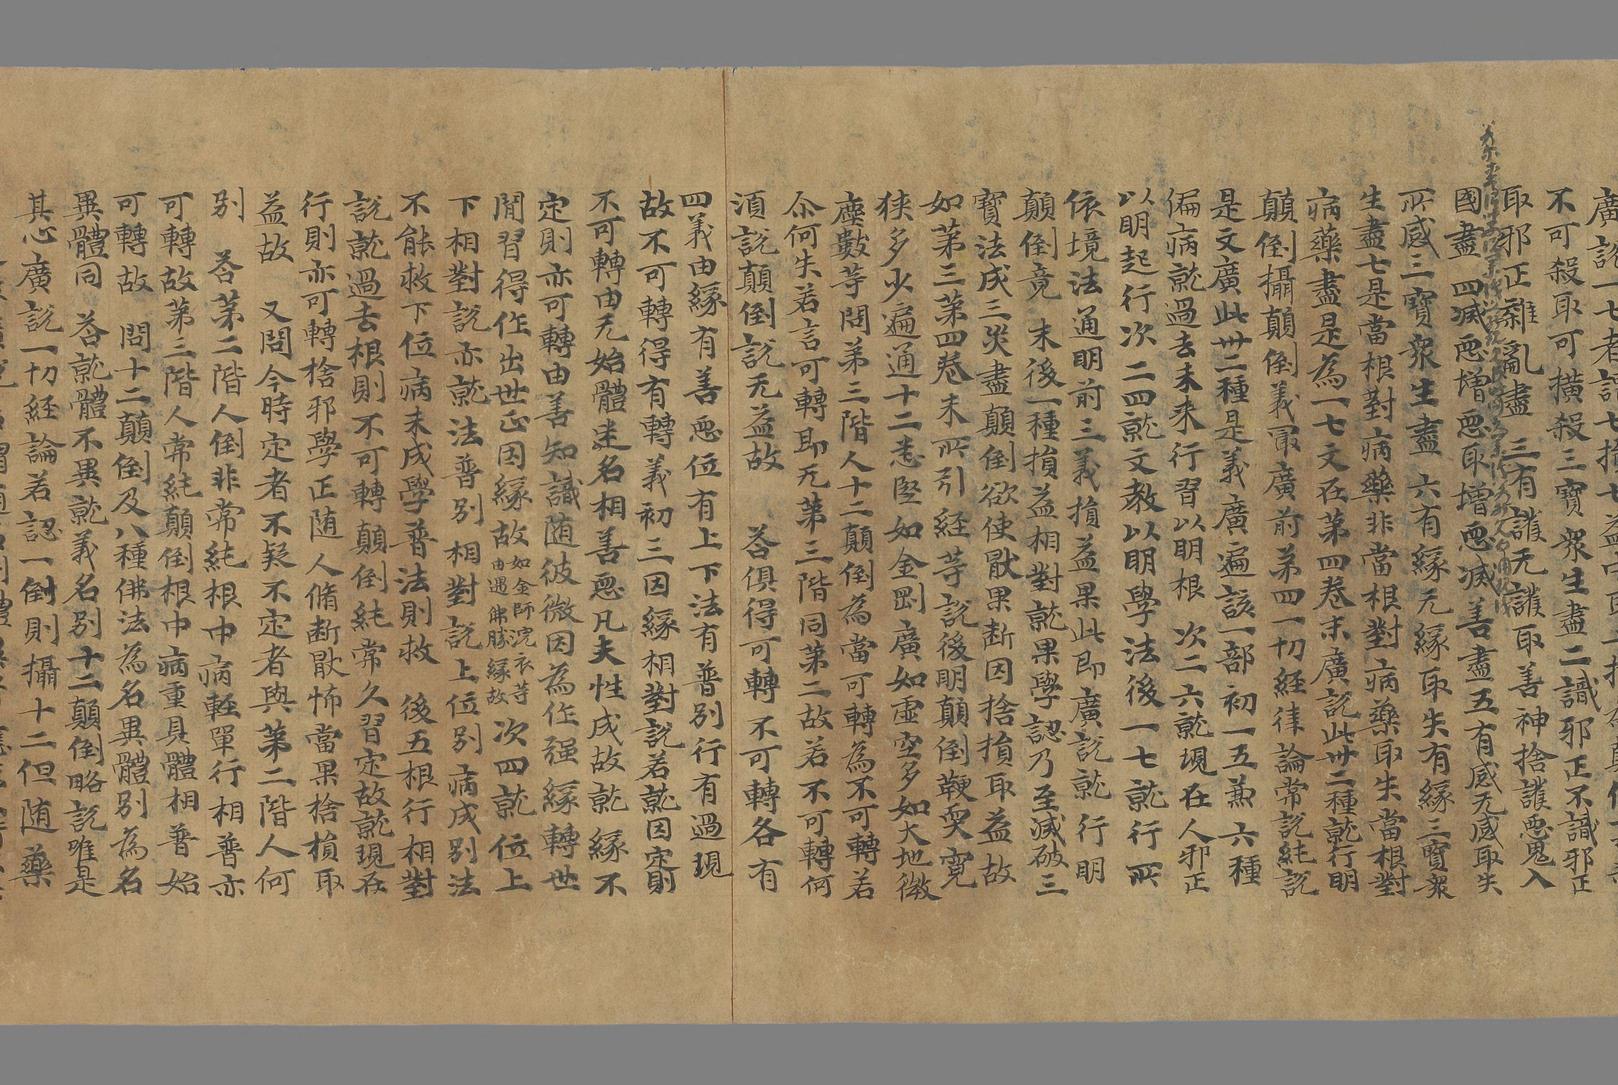 不可殺取可橫殺三寶眾生盡二識邪正不識邪正
取邪正雜亂盡 三有護无護取善神捨護惡鬼入
國盡 四滅惡增惡取增惡滅善盡五有感无感取失
所感三寶眾生盡 六有緣无緣取失有緣三寶眾
生盡七是當根對病藥非當根對病藥取失當根對
病藥盡是為一七文在第四卷末廣說此卅二種就行明
顛倒攝顛倒義冣廣前第四一切經律論常說純說
是文廣此卅二種是義廣遍該一部 初一五兼 六種
偏病就過去未來行習以明根 次二六就現在人邪正
以明起行次二四就文教以明學法後一七就行所
依境法通明前三義損益果此即廣說就行明
顛倒竟 末後一種損益相對就果學認乃至滅破三
寶法成三災盡顛倒欲使猒果斷因捨損取益故
如第三第四卷末所引經等說後明顛倒鞕耎寬
狹多少遍通十二悉堅如金剛廣如虛空多如大地微
塵數等問第三階人十二顛倒為當可轉為不可轉若
尒何失若言可轉即无第三階同第二故若不可轉何
須說顛倒說无益故 荅俱得可轉不可轉各有
四義由緣有善惡位有上下法有普別行有過現
故不可轉得有轉義初三因緣相對說若就因定則
不可轉由无始體迷名相善惡凡夫性成故就緣不
定則亦可轉由善知識随彼微因為作强緣轉世
間習得作出世正因緣故如金師浣衣等由遇佛勝緣故次四就位上
下相對說亦就法普別相對說上位別病成別法
不能救下位病未成學普法則救 後五根行相對
說就過去根則不可轉顛倒純常久習定故就現在
行則亦可轉捨邪學正随人脩斷猒怖當果捨損取
益故 又問今時定者不疑不定者與第二階人何
別 荅第二階人倒非常純根中病輕單行相普亦
可轉故第三階人常純顛倒根中病重具體相普始
可轉故 問十二顛倒及八種佛法為名異體別為名
異體同 荅就體不異就義名別十二顛倒略說唯是
其心廣說一切經論若認一倒則攝十二但随藥